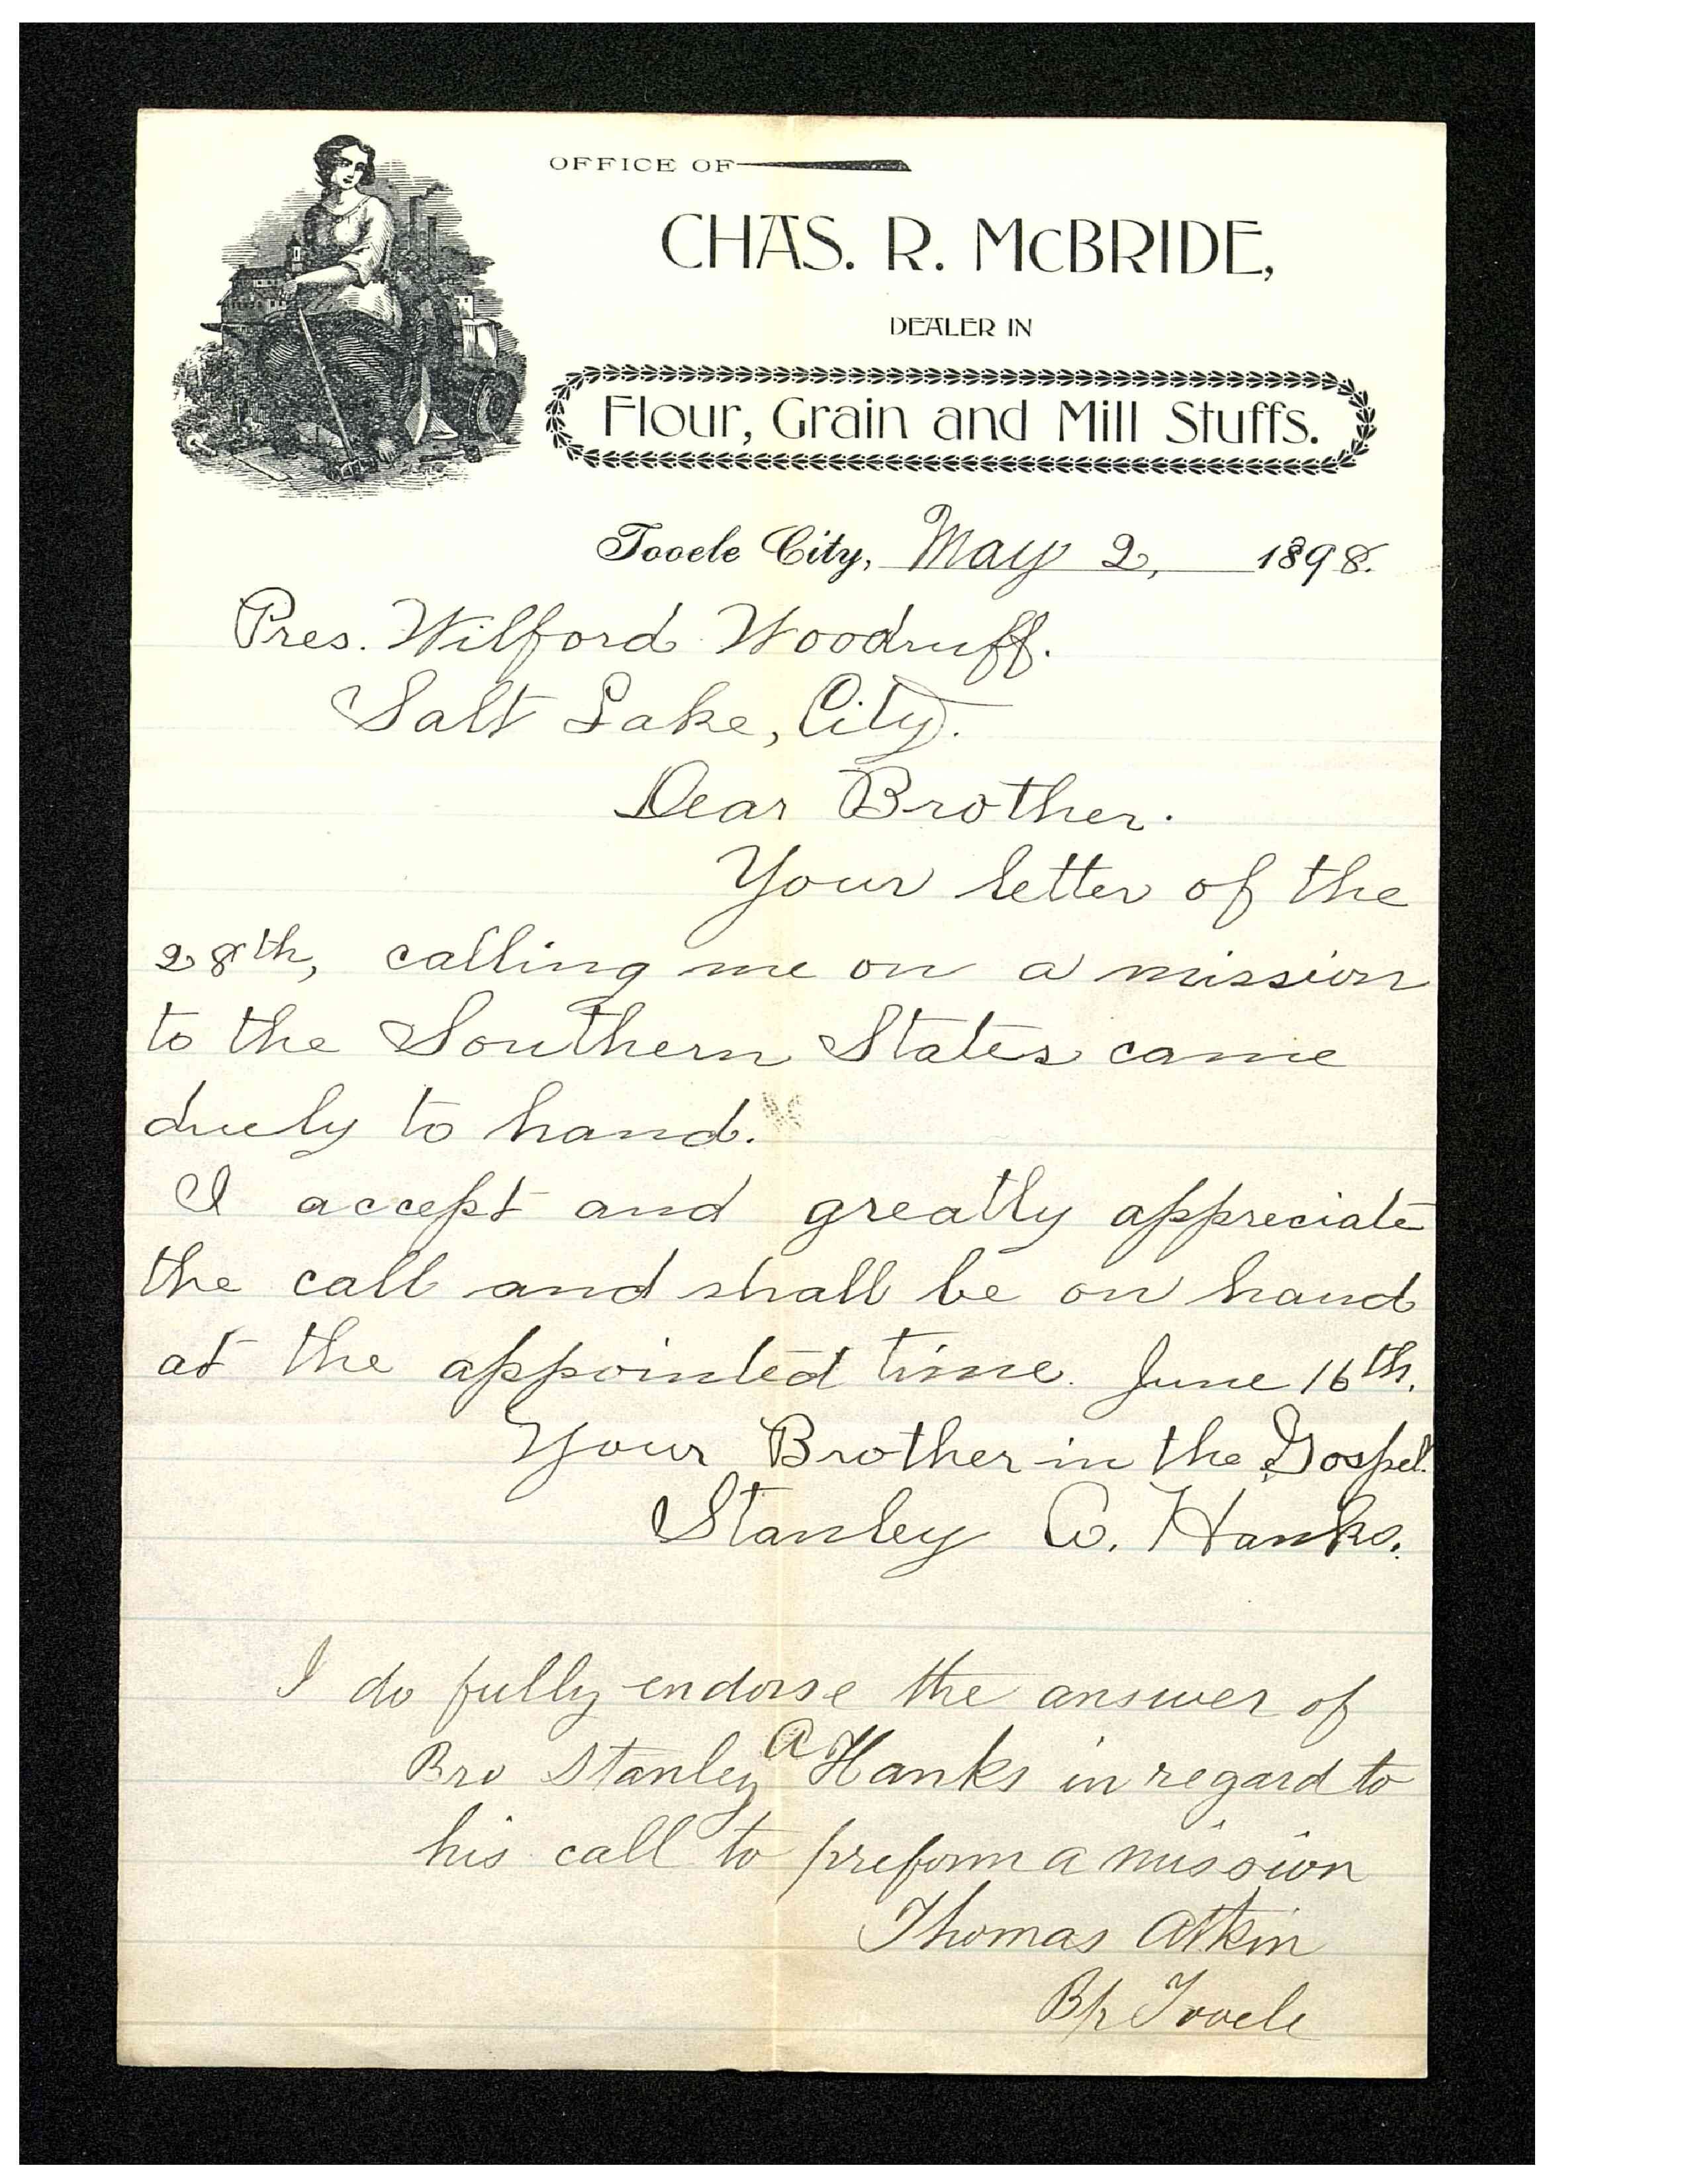 OFFICE OF
CHAS. R. McBRIDE,
DEALER IN
Flour, Grain and Mill Stuffs.
Tooele City, May 2, 1898.
Pres. Wilford Woodruff.
Salt Lake, City.
Dear Brother.
Your letter of the
28th, calling me on a mission
to the Southern States came
duely to hand.
I accept and greatly appreciate
the call and shall be on hand
at the appointed time. June 16th.
Your Brother in the Gospel.
Stanley A. Hanks.
I do fully endorse the answer of
Bro Stanley A Hanks in regard to
his call to preform a mission
Thomas Atkin
Bp Tooele